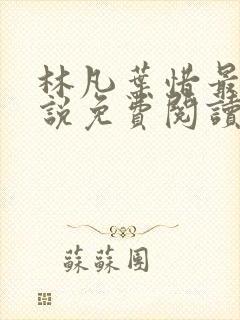 林凡葉惜最
說免費閱讀
蘇蘇團